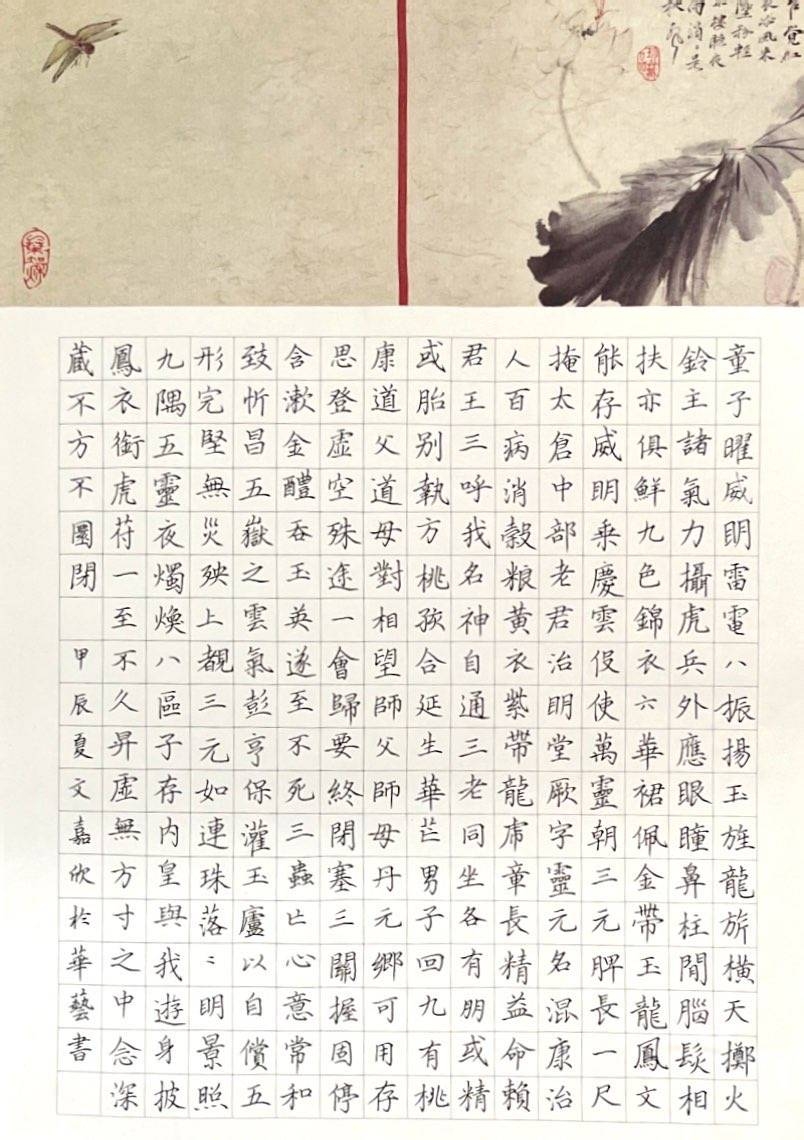 墜粉輕
童子曜威明雷電八振揚玉旌龍旂橫天擲火
鈴主諸氣力攝虎兵外應眼瞳鼻柱間腦髮相
扶亦俱鮮九色錦衣六華裙佩金帶玉龍鳳文
能存威明乘慶雲伇使萬靈朝三元脾長一尺
掩太倉中部老君治明堂厥字靈元名混康治
人百病消穀粮黃衣紫帶龍虎章長精益命賴
君王三呼我名神自通三老同坐各有朋或精
或胎別執方桃孩合延生華芒男子回九有桃
康道父道母對相望師父師母丹元鄉可用存
思登虛空殊途一會歸要終閉塞三關握固停
含漱金醴吞玉英遂至不死三蟲亡心意常和
致忻昌五嶽之雲氣彭亨保灌玉廬以自償五
形完堅無災殃上覩三元如連珠落〻明景照
九隅五靈夜燭煥八區子存內皇與我遊身披
鳳衣銜虎苻一至不久昇虛無方寸之中念深
藏不方不圓閉 甲辰夏文嘉欣於華藝書